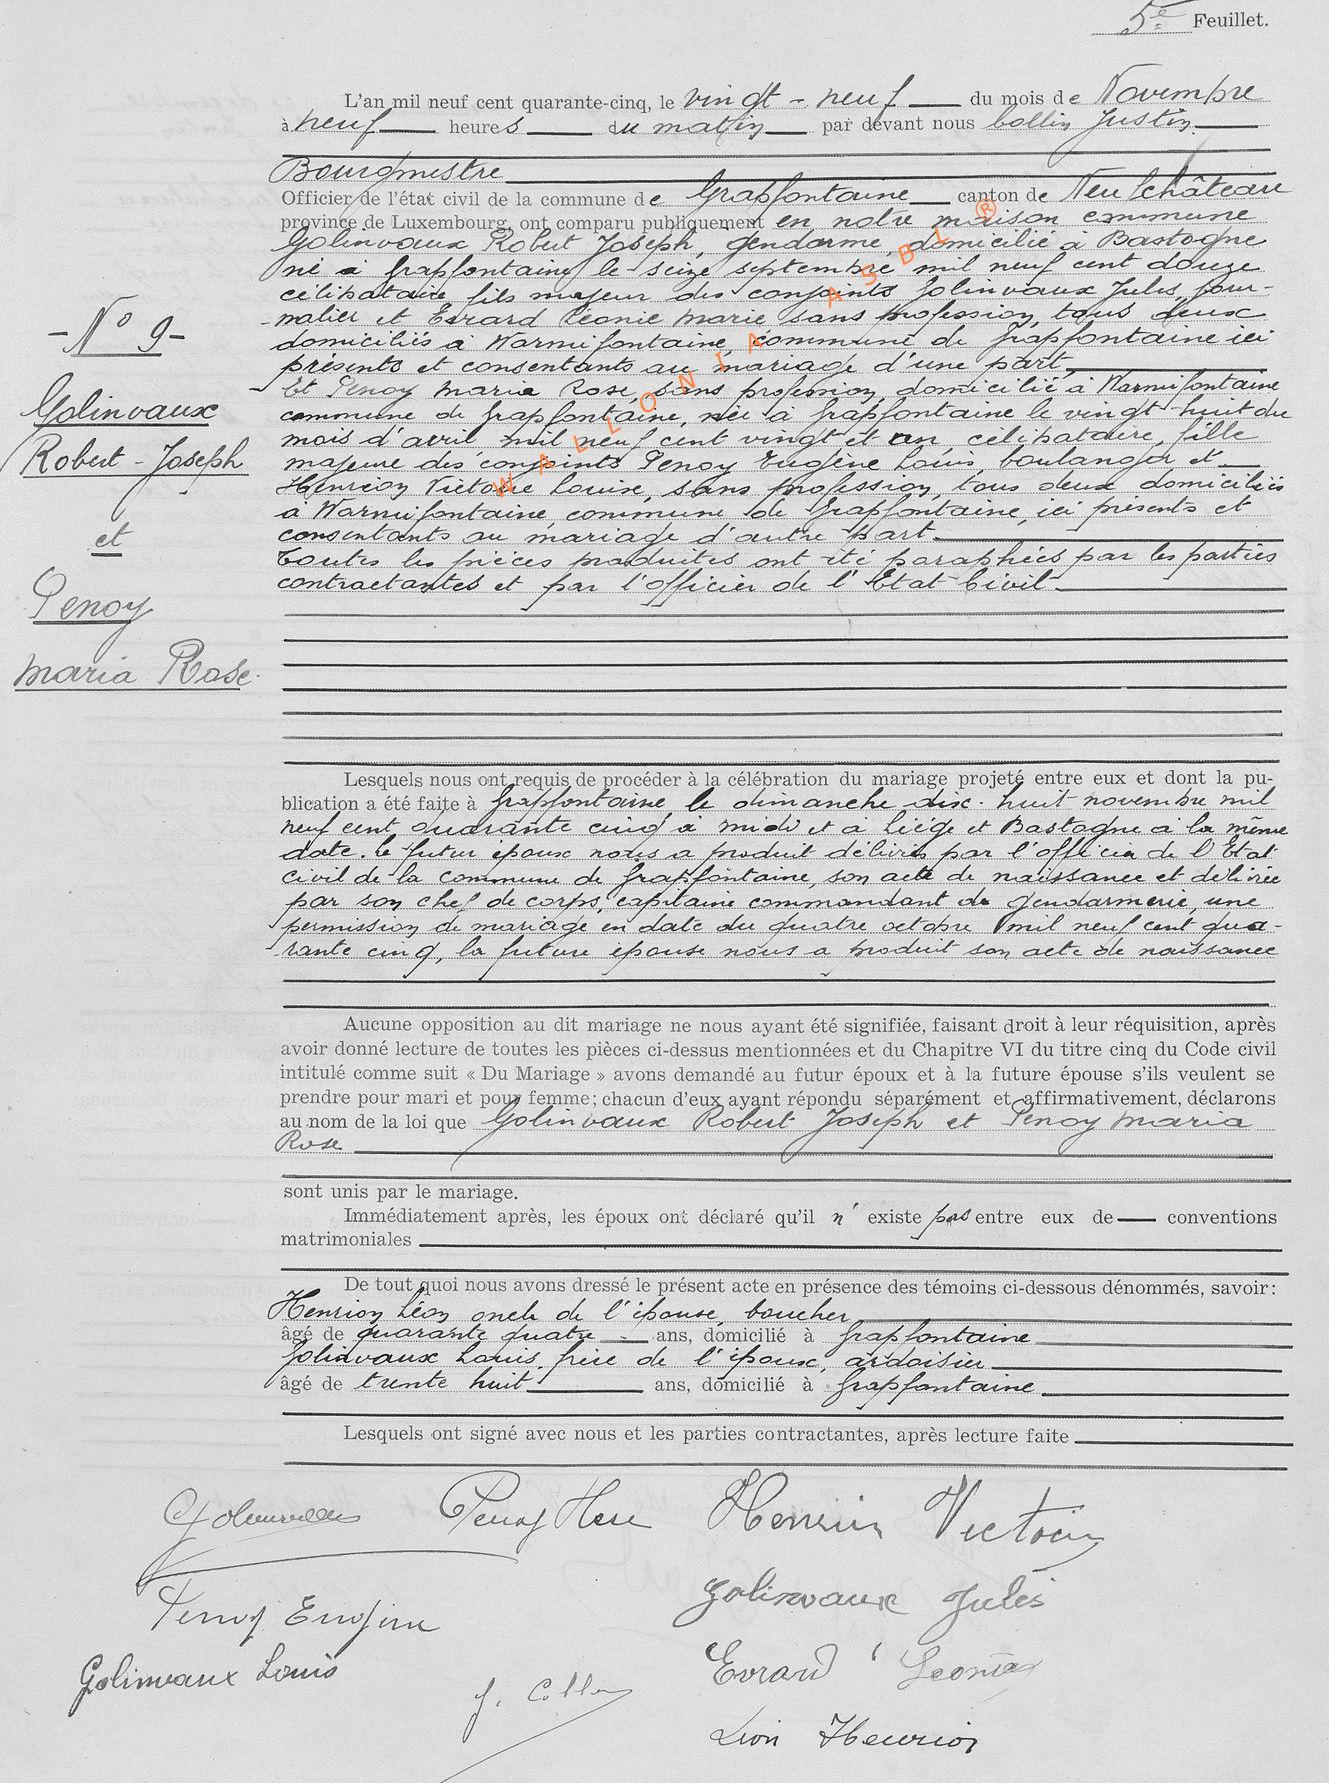 5e Feuillet.
L'an mil neuf cent quarante-cinq, le vingt-neuf du mois de Novembre
à neuf heures du matin par devant nous Collin Justin
Bourgmestre
Officier de l'état civil de la commune de Grapfontaine canton de Neufchâteau
province de Luxembourg, ont comparu publiquement en notre maison commune
Golinvaux Robert Joseph, gendarme, domicilié à Bastogne
né à Grapfontaine le seize septembre mil neuf cent douze
célibataire, fils majeur des conjoints Golinvaux Jules, jour-
nalier et Evrard Léonie Marie sans profession, tous deux
domiciliés à Warmifontaine, commune de Grapfontaine ici
présents et consentants au mariage d'une part,
Et Penoy Maria Rose, sans profession, domicilié à Warmifontaine
commune de Grapfontaine, née à Grapfontaine le vingt-huit du
mois d'avril mil neuf cent vingt et un, célibataire, fille
majeure des conjoints Penoy Eugène Louis, boulanger et
Henrion Victoire Louise, sans profession, tous deux domiciliés
à Warmifontaine, commune de Grapfontaine, ici présents et
consentants au mariage d'autre part.
Toutes les pièces produites ont été paraphées par les parties
contractantes et par l'officier de l'Etat Civil.
-N° 9-
Golinvaux
Robert-Joseph
et
Penoy
Maria Rose.
WALLONIA ASBL ®
Lesquels nous ont requis de procéder à la célébration du mariage projeté entre eux et dont la pu-
blication a été faite à Grapfontaine le dimanche dix-huit novembre mil
neuf cent quarante cinq à midi et à Liège et Bastogne à la même
date. Le futur époux nous a produit délivré par l'officier de l'Etat
civil de la commune de Grapfontaine, son acte de naissance et délivrée
par son chef de corps, capitaine commandant de gendarmerie, une
permission de mariage en date du quatre octobre mil neuf cent qua-
rante cinq, la future épouse nous a produit son acte de naissance
Aucune opposition au dit mariage ne nous ayant été signifiée, faisant droit à leur réquisition, après
avoir donné lecture de toutes les pièces ci-dessus mentionnées et du Chapitre VI du titre cinq du Code civil
intitulé comme suit « Du Mariage » avons demandé au futur époux et à la future épouse s'ils veulent se
prendre pour mari et pour femme; chacun d'eux ayant répondu séparément et affirmativement, déclarons
au nom de la loi que Golinvaux Robert Joseph et Penoy Maria
Rose
sont unis par le mariage.
Immédiatement après, les époux ont déclaré qu'il n'existe pas entre eux de conventions
matrimoniales
De tout quoi nous avons dressé le présent acte en présence des témoins ci-dessous dénommés, savoir:
Henrion Léon oncle de l'épouse, boucher
âgé de quarante quatre ans, domicilié à Grapfontaine
Golinvaux Louis, frère de l'époux, ardoisier
âgé de trente huit ans, domicilié à Grapfontaine
Lesquels ont signé avec nous et les parties contractantes, après lecture faite
Golinvaux Penoy Henrion Victoire
Penoy Eugène Golinvaux Jules
Golinvaux Louis J. Collin Evrard Leonie
Léon Henrion